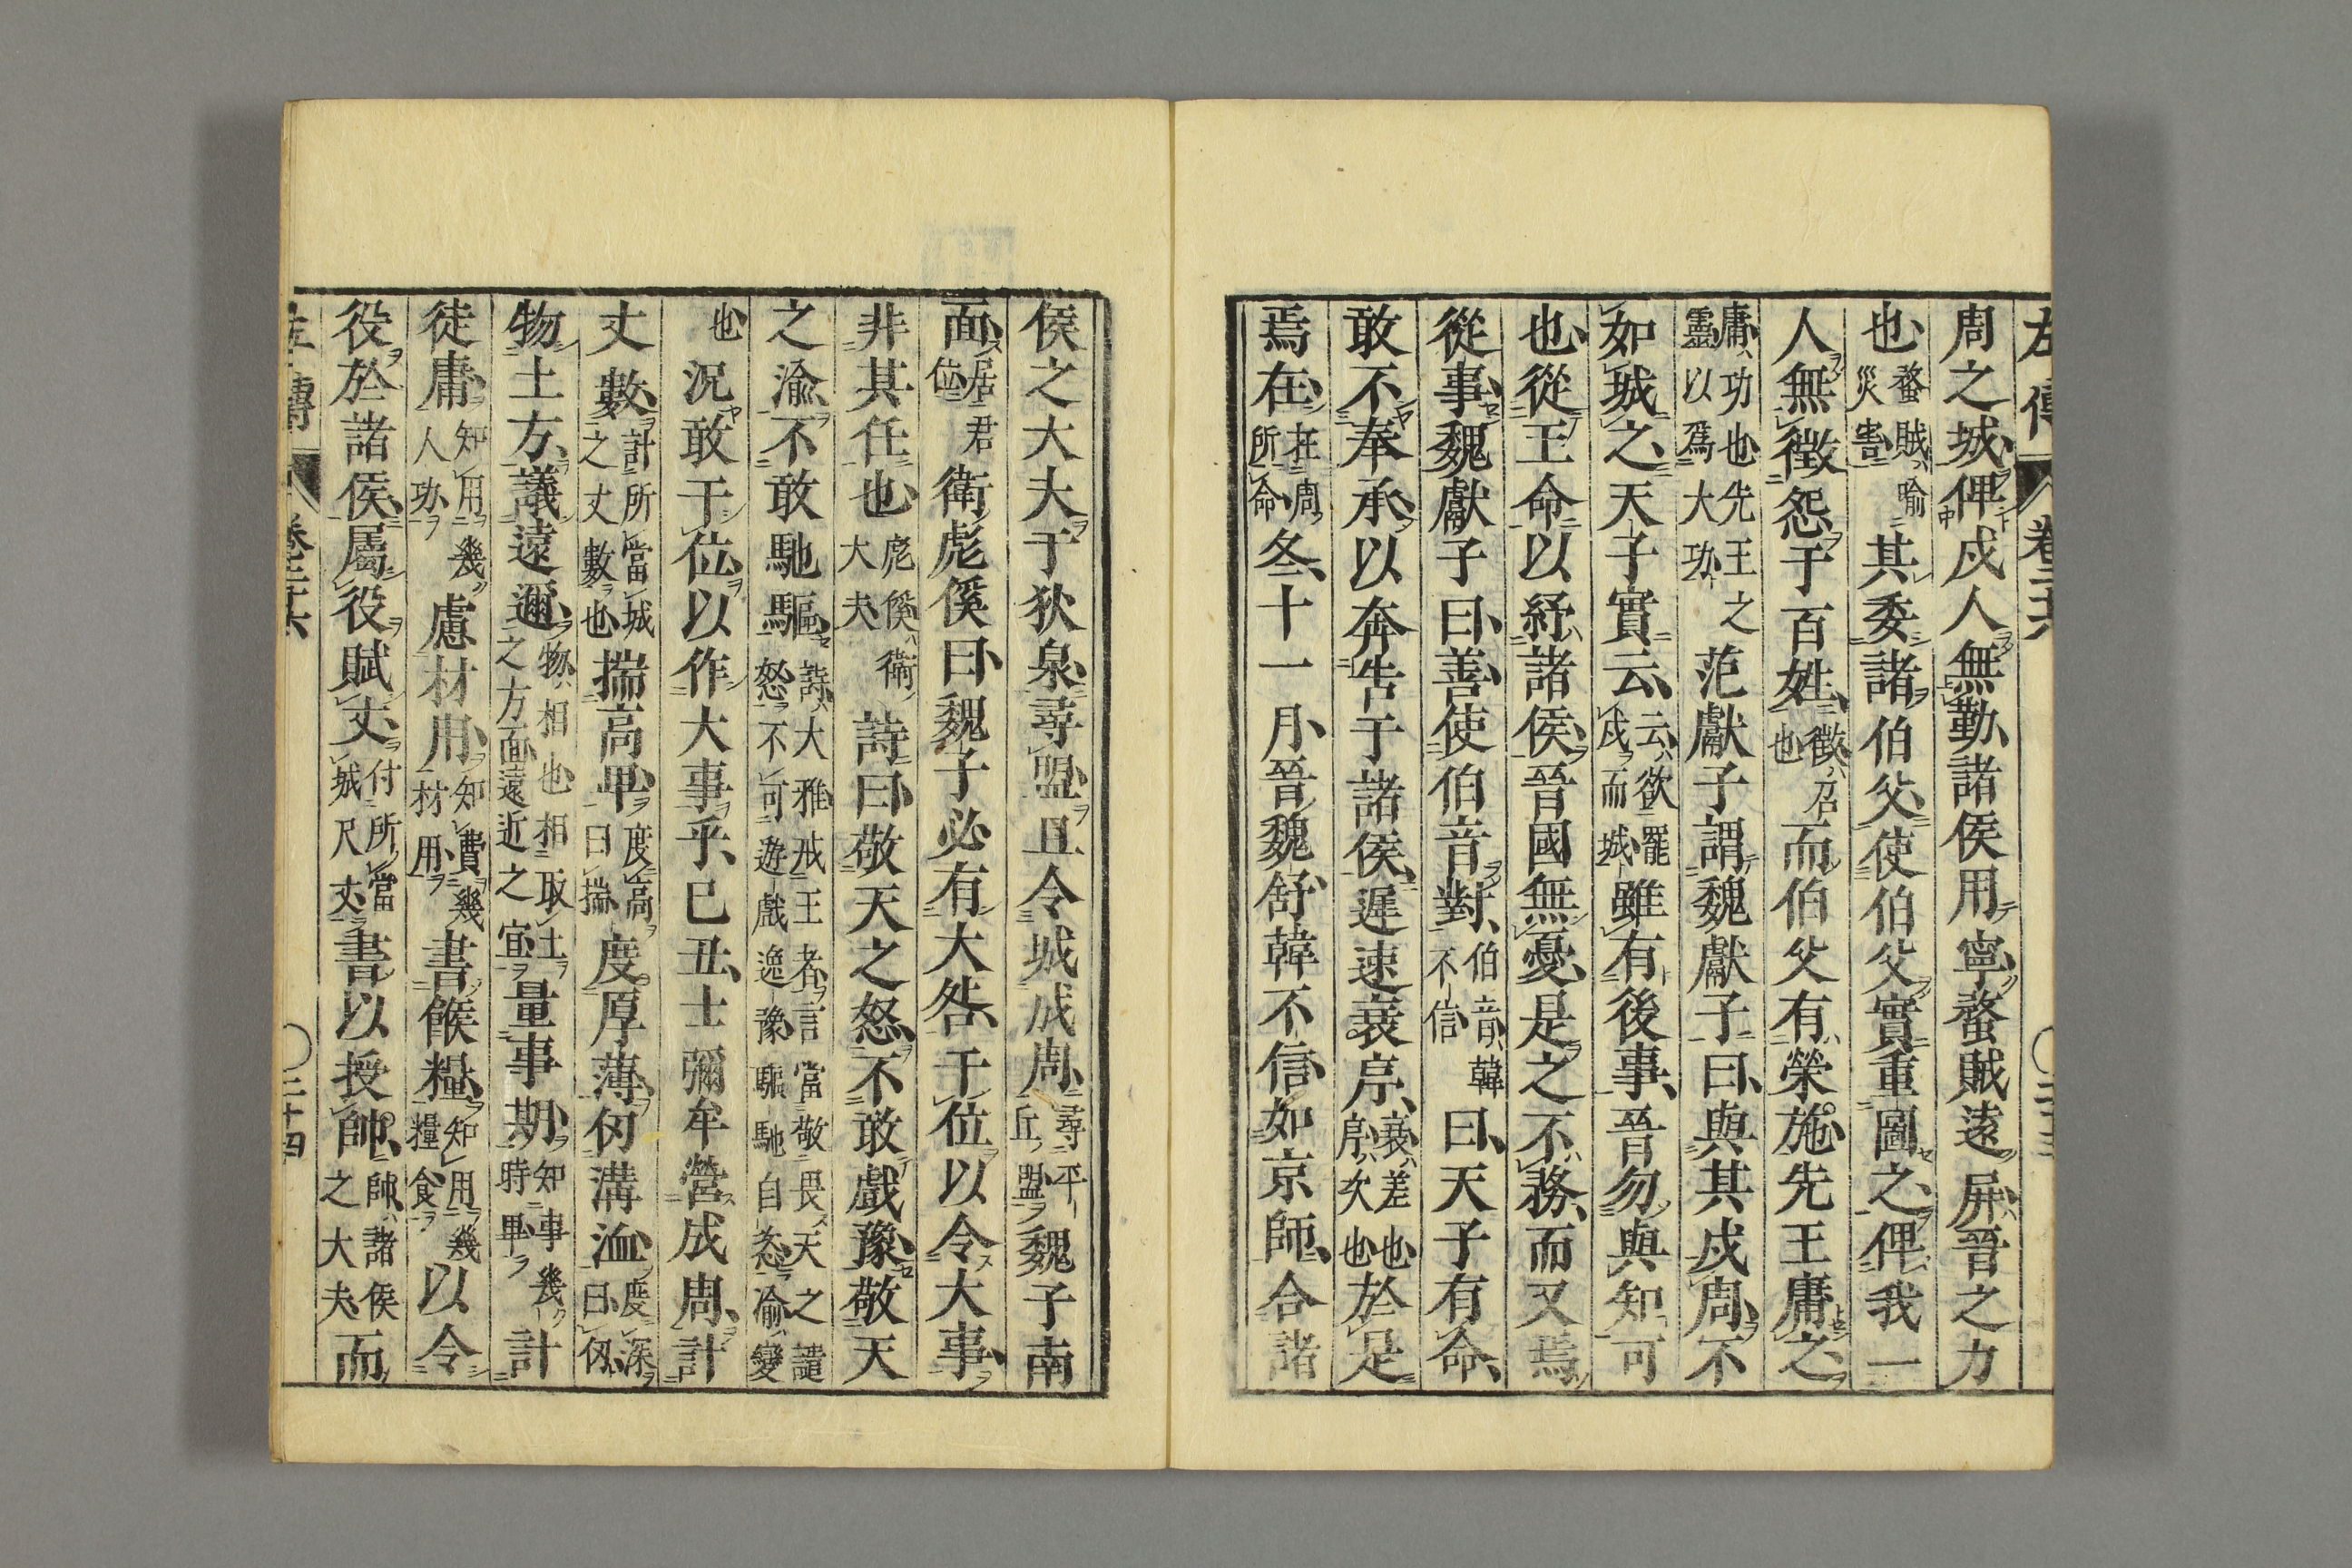 左傳 卷二十六 〇二十三
周之城俾戍人無勤諸侯用寧蝥賊遠屏晉之力
也蝥賊喻災害其委諸伯父使伯父實重圖之俾我一
人無徵怨于百姓徵召也而伯父有榮施先王庸之
庸功也先王之靈以爲大功范獻子謂魏獻子曰與其戍周不
如城之天子實云云欲罷戍而城雖有後事晉勿與知可
也從王命以紓諸侯晉國無憂是之不務而又焉
從事魏獻子曰善使伯音對伯音韓不信曰天子有命
敢不奉承以奔告于諸侯遲速衰序衰差也序次也於是
焉在在周所命冬十一月晉魏舒韓不信如京師合諸
侯之大夫于狄泉尋盟且令城成周尋平丘盟魏子南
面居君位衛彪傒曰魏子必有大咎干位以令大事
非其任也彪傒衛大夫詩曰敬天之怒不敢戲豫敬天
之渝不敢馳驅詩大雅戒王者言當敬畏天之譴怒不可遊戲逸豫驅馳自恣渝變
也況敢干位以作大事乎己丑士彌牟營成周計
丈數計所當城之丈數也揣高卑度高曰揣度厚薄仞溝洫度深曰仞
物土方議遠邇物相也相取土之方面遠近之宜量事期知事幾時畢計
徒庸知用幾人功慮材用知費幾材用書餱糧知用幾糧食以令
役於諸侯屬役賦丈付所當城尺丈書以授帥帥諸侯之大夫而
左傳 卷二十六 〇二十四